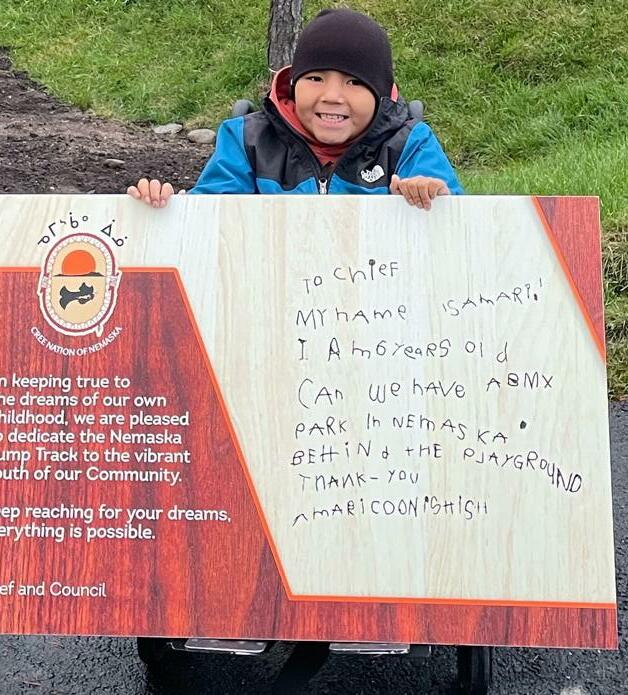 CREE NATION OF NEMASKA
n keeping true to
he dreams of our own
hildhood, we are pleased
o dedicate the Nemaska
ump Track to the vibrant
outh of our Community.
eep reaching for your dreams,
erything is possible.
ef and Council
TO CHiEF
MY NAME ISAMARI.'
I Am 6 YeaRS Old
CAN we hAVE A BMX
PARK IN NEMASKA.
BEHIND THE PLAYGROUND
THANK-YOU
AMARI COONISHISH
THE NORTH FACE